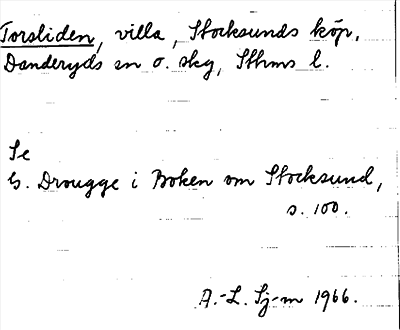 Torsliden, villa, Stocksunds köp,
Danderyds sn o. skg, Sthms l.
Se
G. Drougge i Boken om Stocksund,
s. 100.
A.-L. Sj-m 1966.